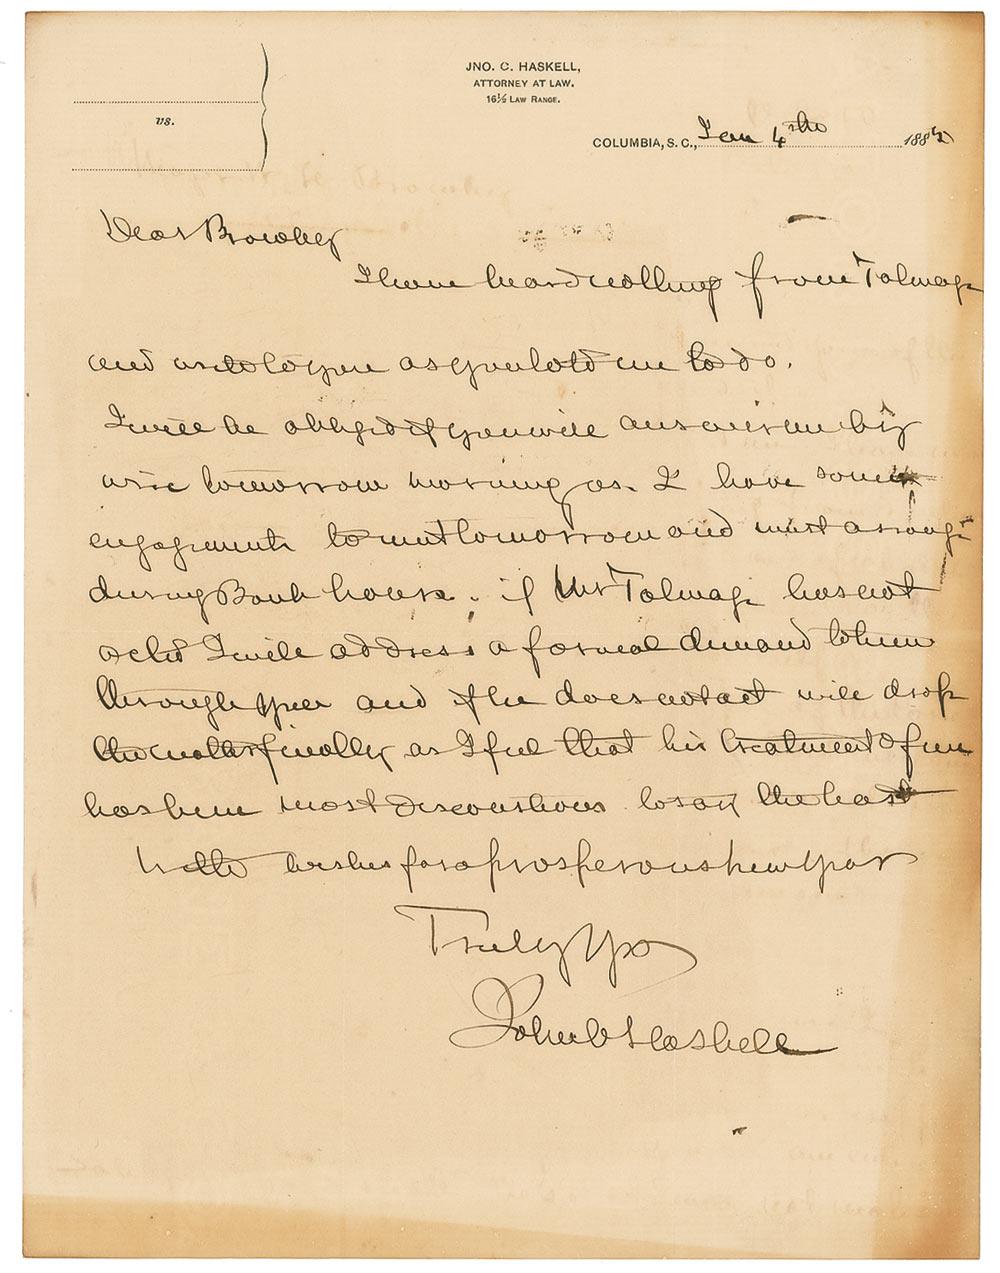 JNO. C. HASKELL,
ATTORNEY AT LAW.
16½ LAW RANGE.
vs.
COLUMBIA, S. C., Jan 4th 188
Dear Brawley
I have heard nothing from Talmage
and write to you as you told me to do.
I will be obliged if you will answer me by
wire tomorrow morning as I have some
engagements to meet tomorrow and must arrange
during Bank hours. if Mr Talmage has not
acted I will address a formal demand to him
through you and if he does not act will drop
the matter finally as I feel that his treatment of me
has been most discourteous to say the least
With wishes for a prosperous new year
Truly Yrs
John C Haskell